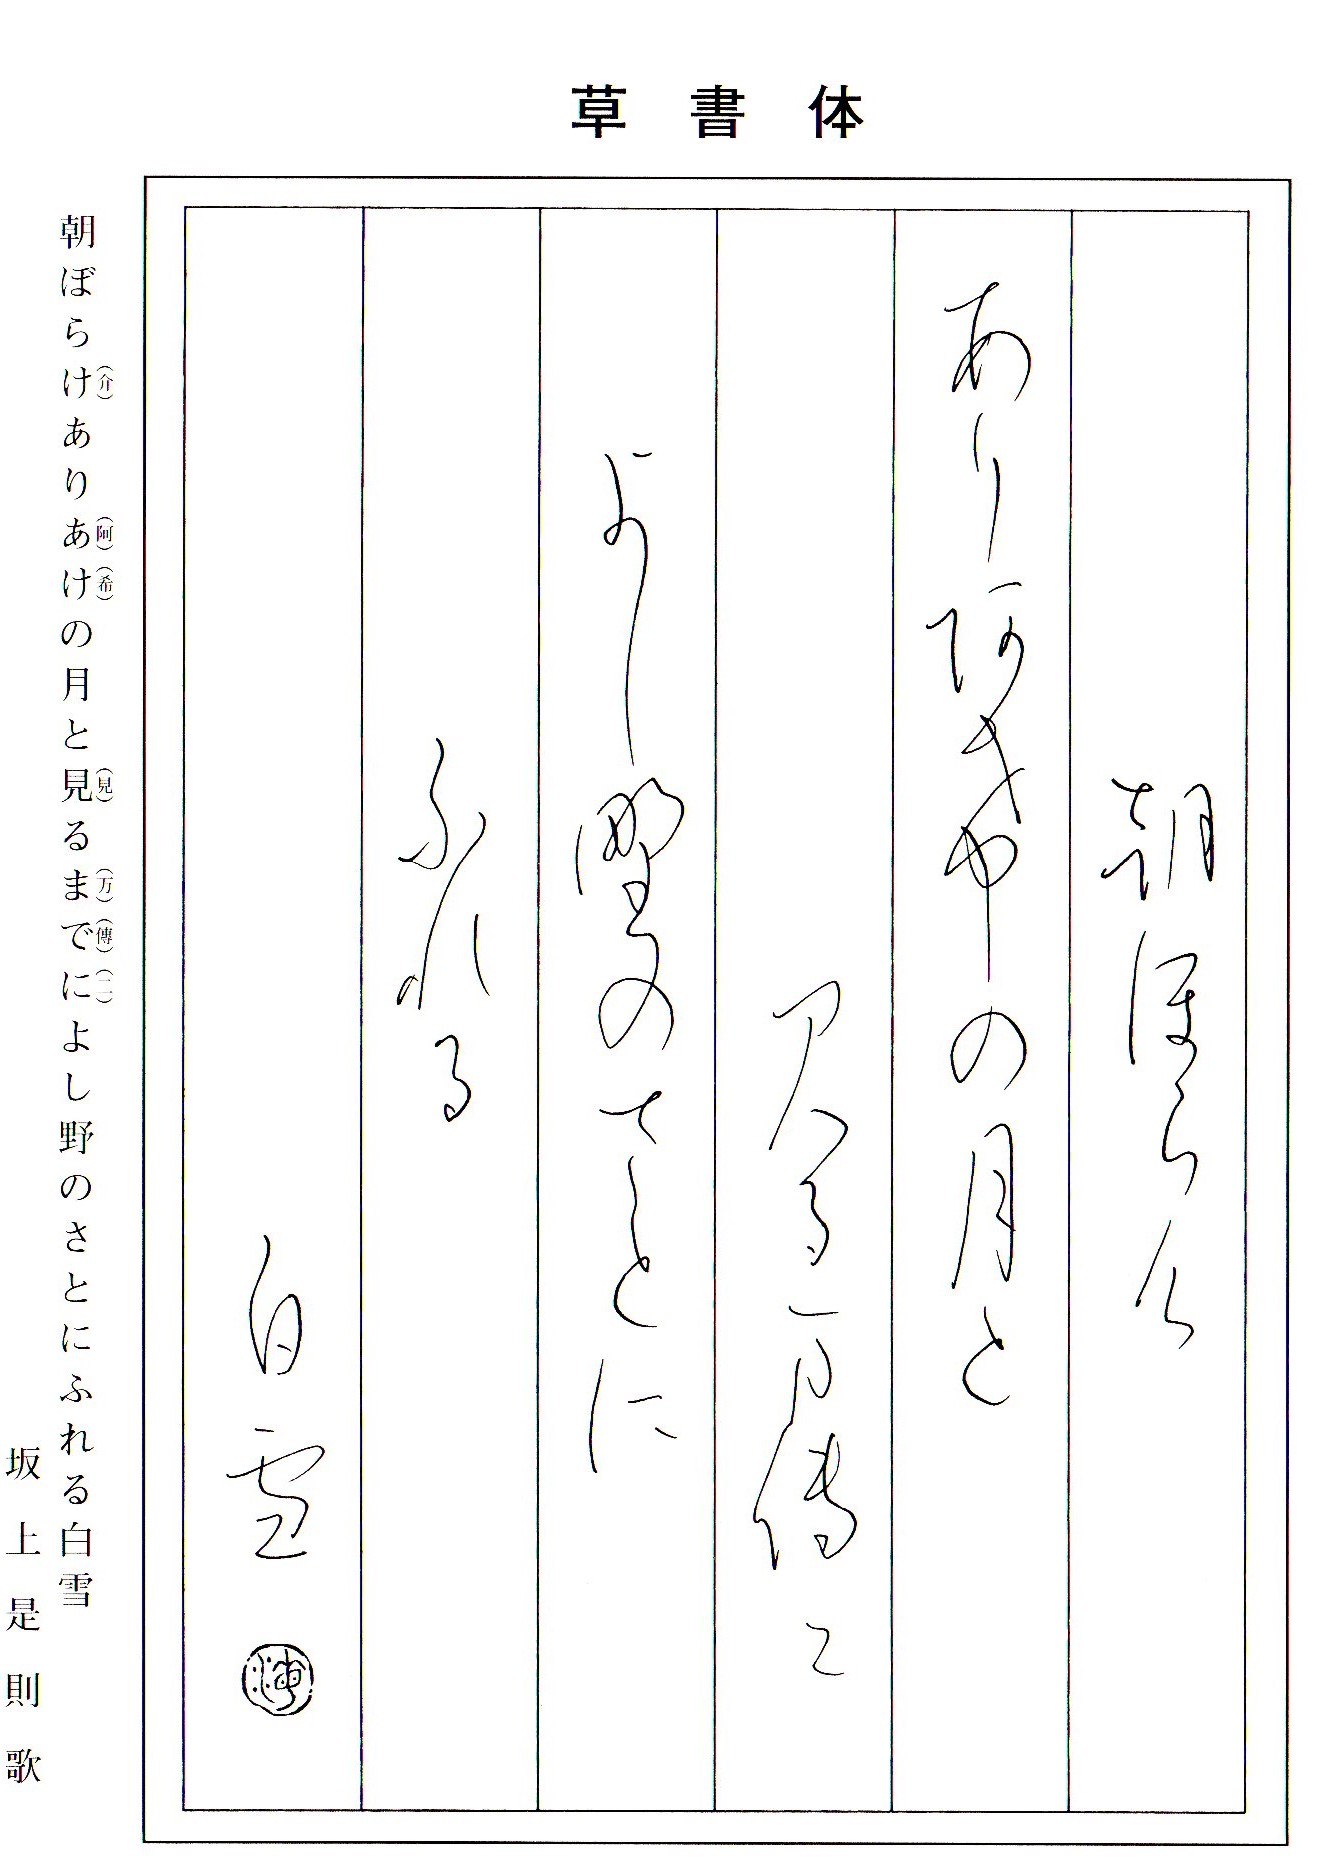 草書体
朝ほら介
あり阿希の月と
見る万傳二
よし野のさとに
ふれる
白雪
朝ぼらけ(介)ありあ(阿)け(希)の月と見(見)るま(万)で(傳)に(二)よし野のさとにふれる白雪
坂上是則歌